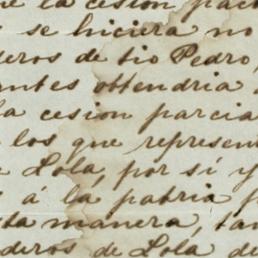 la cesion
se hiciera no
deros de tio Pedro,
antes obtendria
la cesion parcia
los que represent
Lola, por sí y
á la patria p
ta manera, tan
deros de Lola de